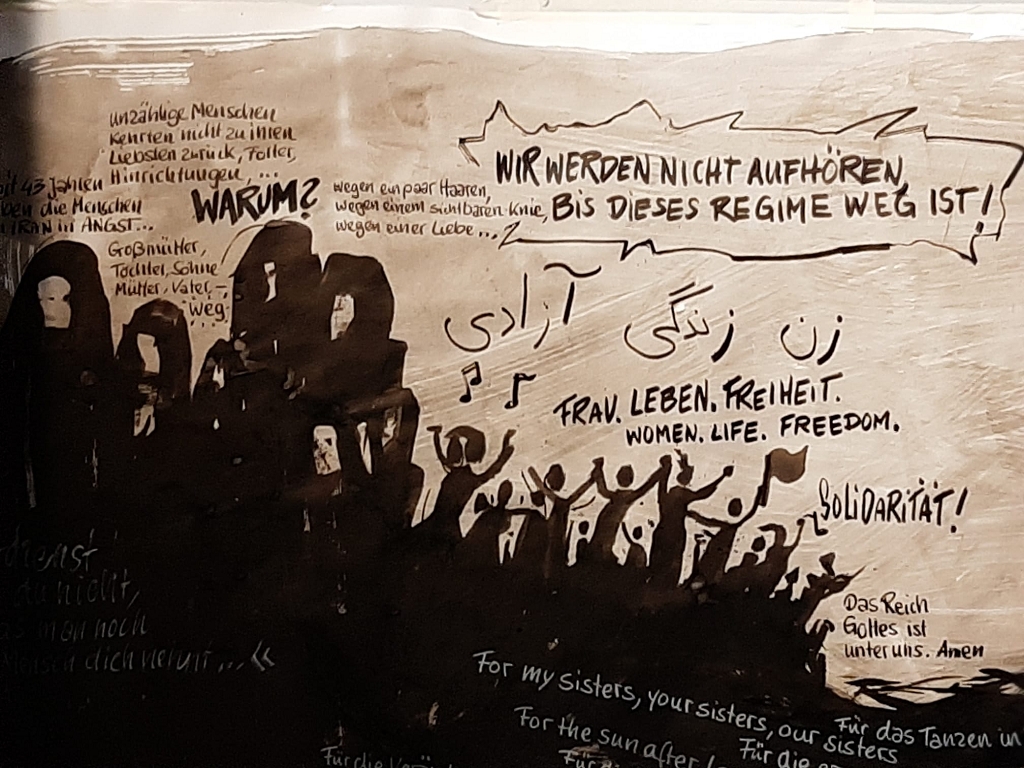 unzählige Menschen
kehrten nicht zu ihren
Liebsten zurück, Folter,
Hinrichtungen, ...
43 Jahren
die Menschen
IRAN in ANGST...
WARUM?
wegen ein paar Haaren,
wegen einem sichtbaren Knie,
wegen einer Liebe...
WIR WERDEN NICHT AUFHÖREN,
BIS DIESES REGIME WEG IST!
Goßmütter,
Töchter, Söhne
Mütter, Väter –
Weg
زن زندگی آزادی
FRAU. LEBEN. FREIHEIT.
WOMEN. LIFE. FREEDOM.
SOLIDARITÄT!
Das Reich
Gottes ist
unter uns. Amen
du nicht,
man noch
Mensch dich nennt... «
For my sisters, your sisters, our sisters
For the sun after
Für das Tanzen in
Für die
Für die